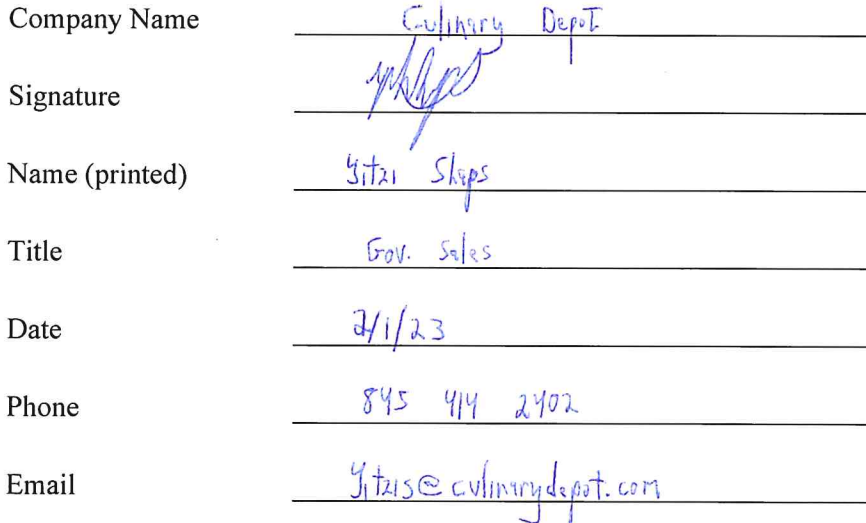 Company Name Culinary Depot
Signature
Name (printed) Yitzi Shaps
Title Gov. Sales
Date 2/1/23
Phone 845 414 2402
Email Yitzis@culinarydepot.com